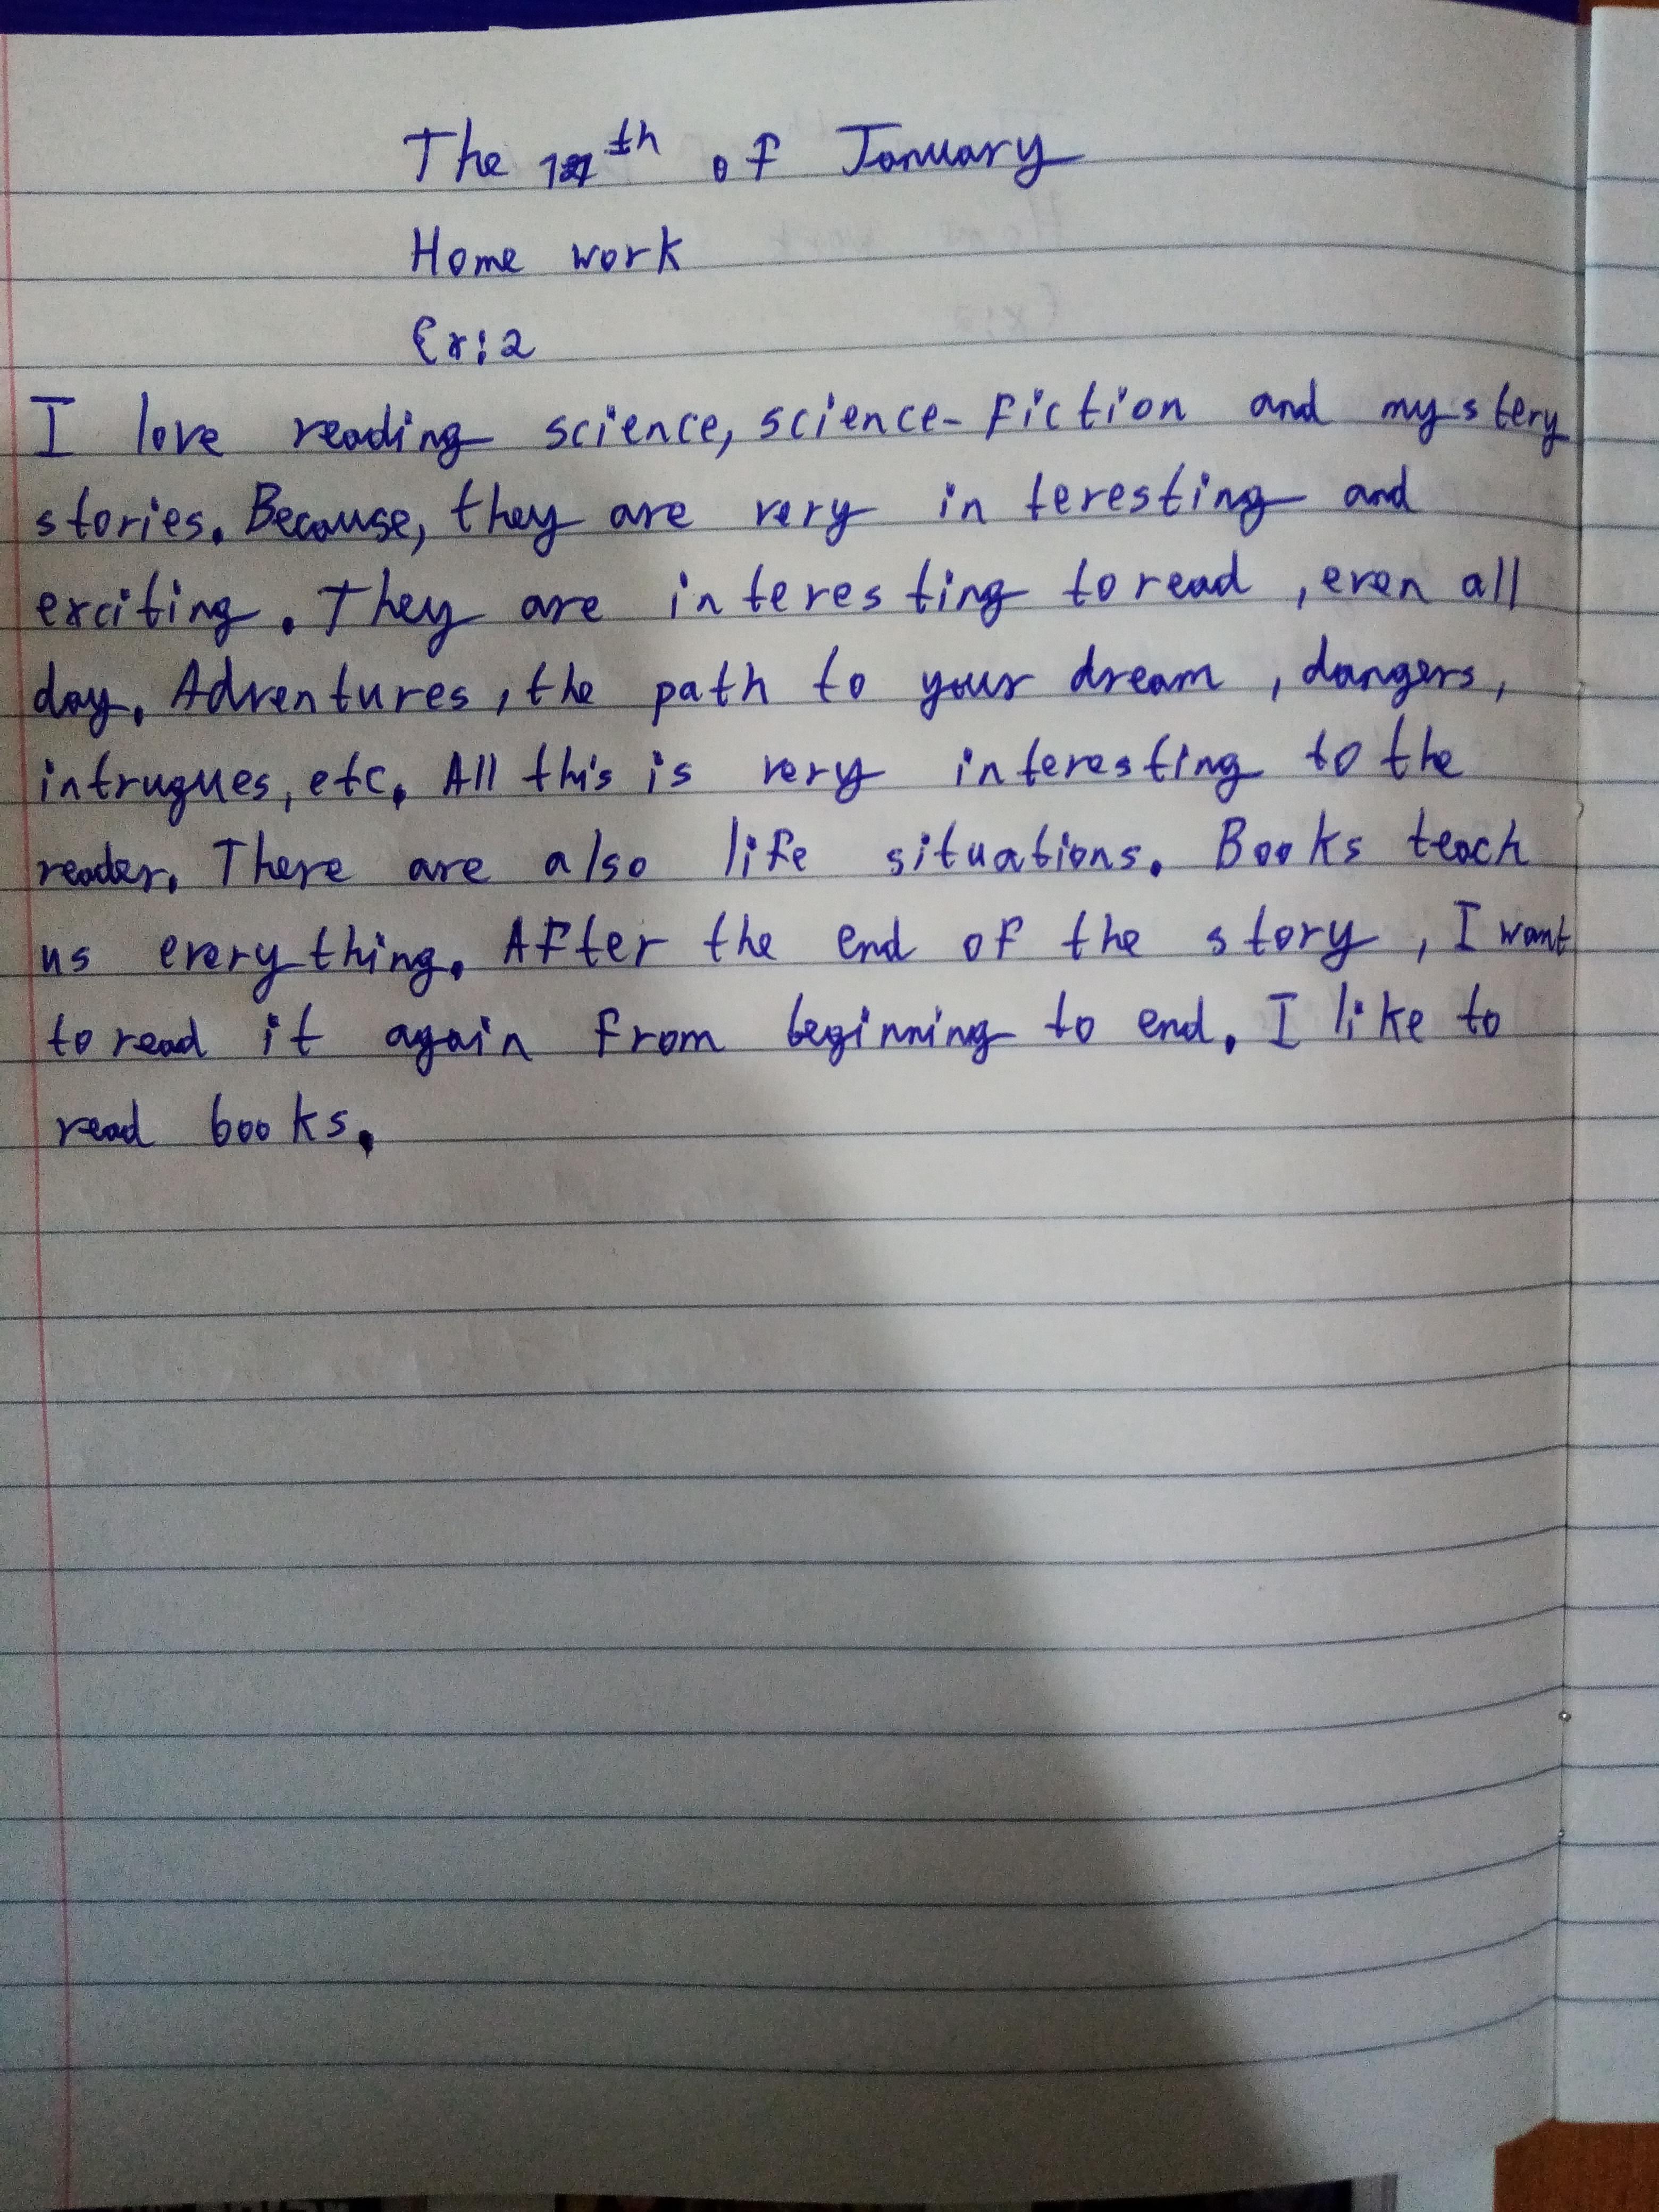 The th of January
Home work
Ex:2
I love reading science, science-fiction and mystery
stories. Because, they are very interesting and
exciting. They are interesting to read, even all
day. Adventures, the path to your dream, dangers,
intrugues, etc. All this is very interesting to the
reader. There are also life situations. Books teach
us everything. After the end of the story, I want
to read it again from beginning to end. I like to
read books.